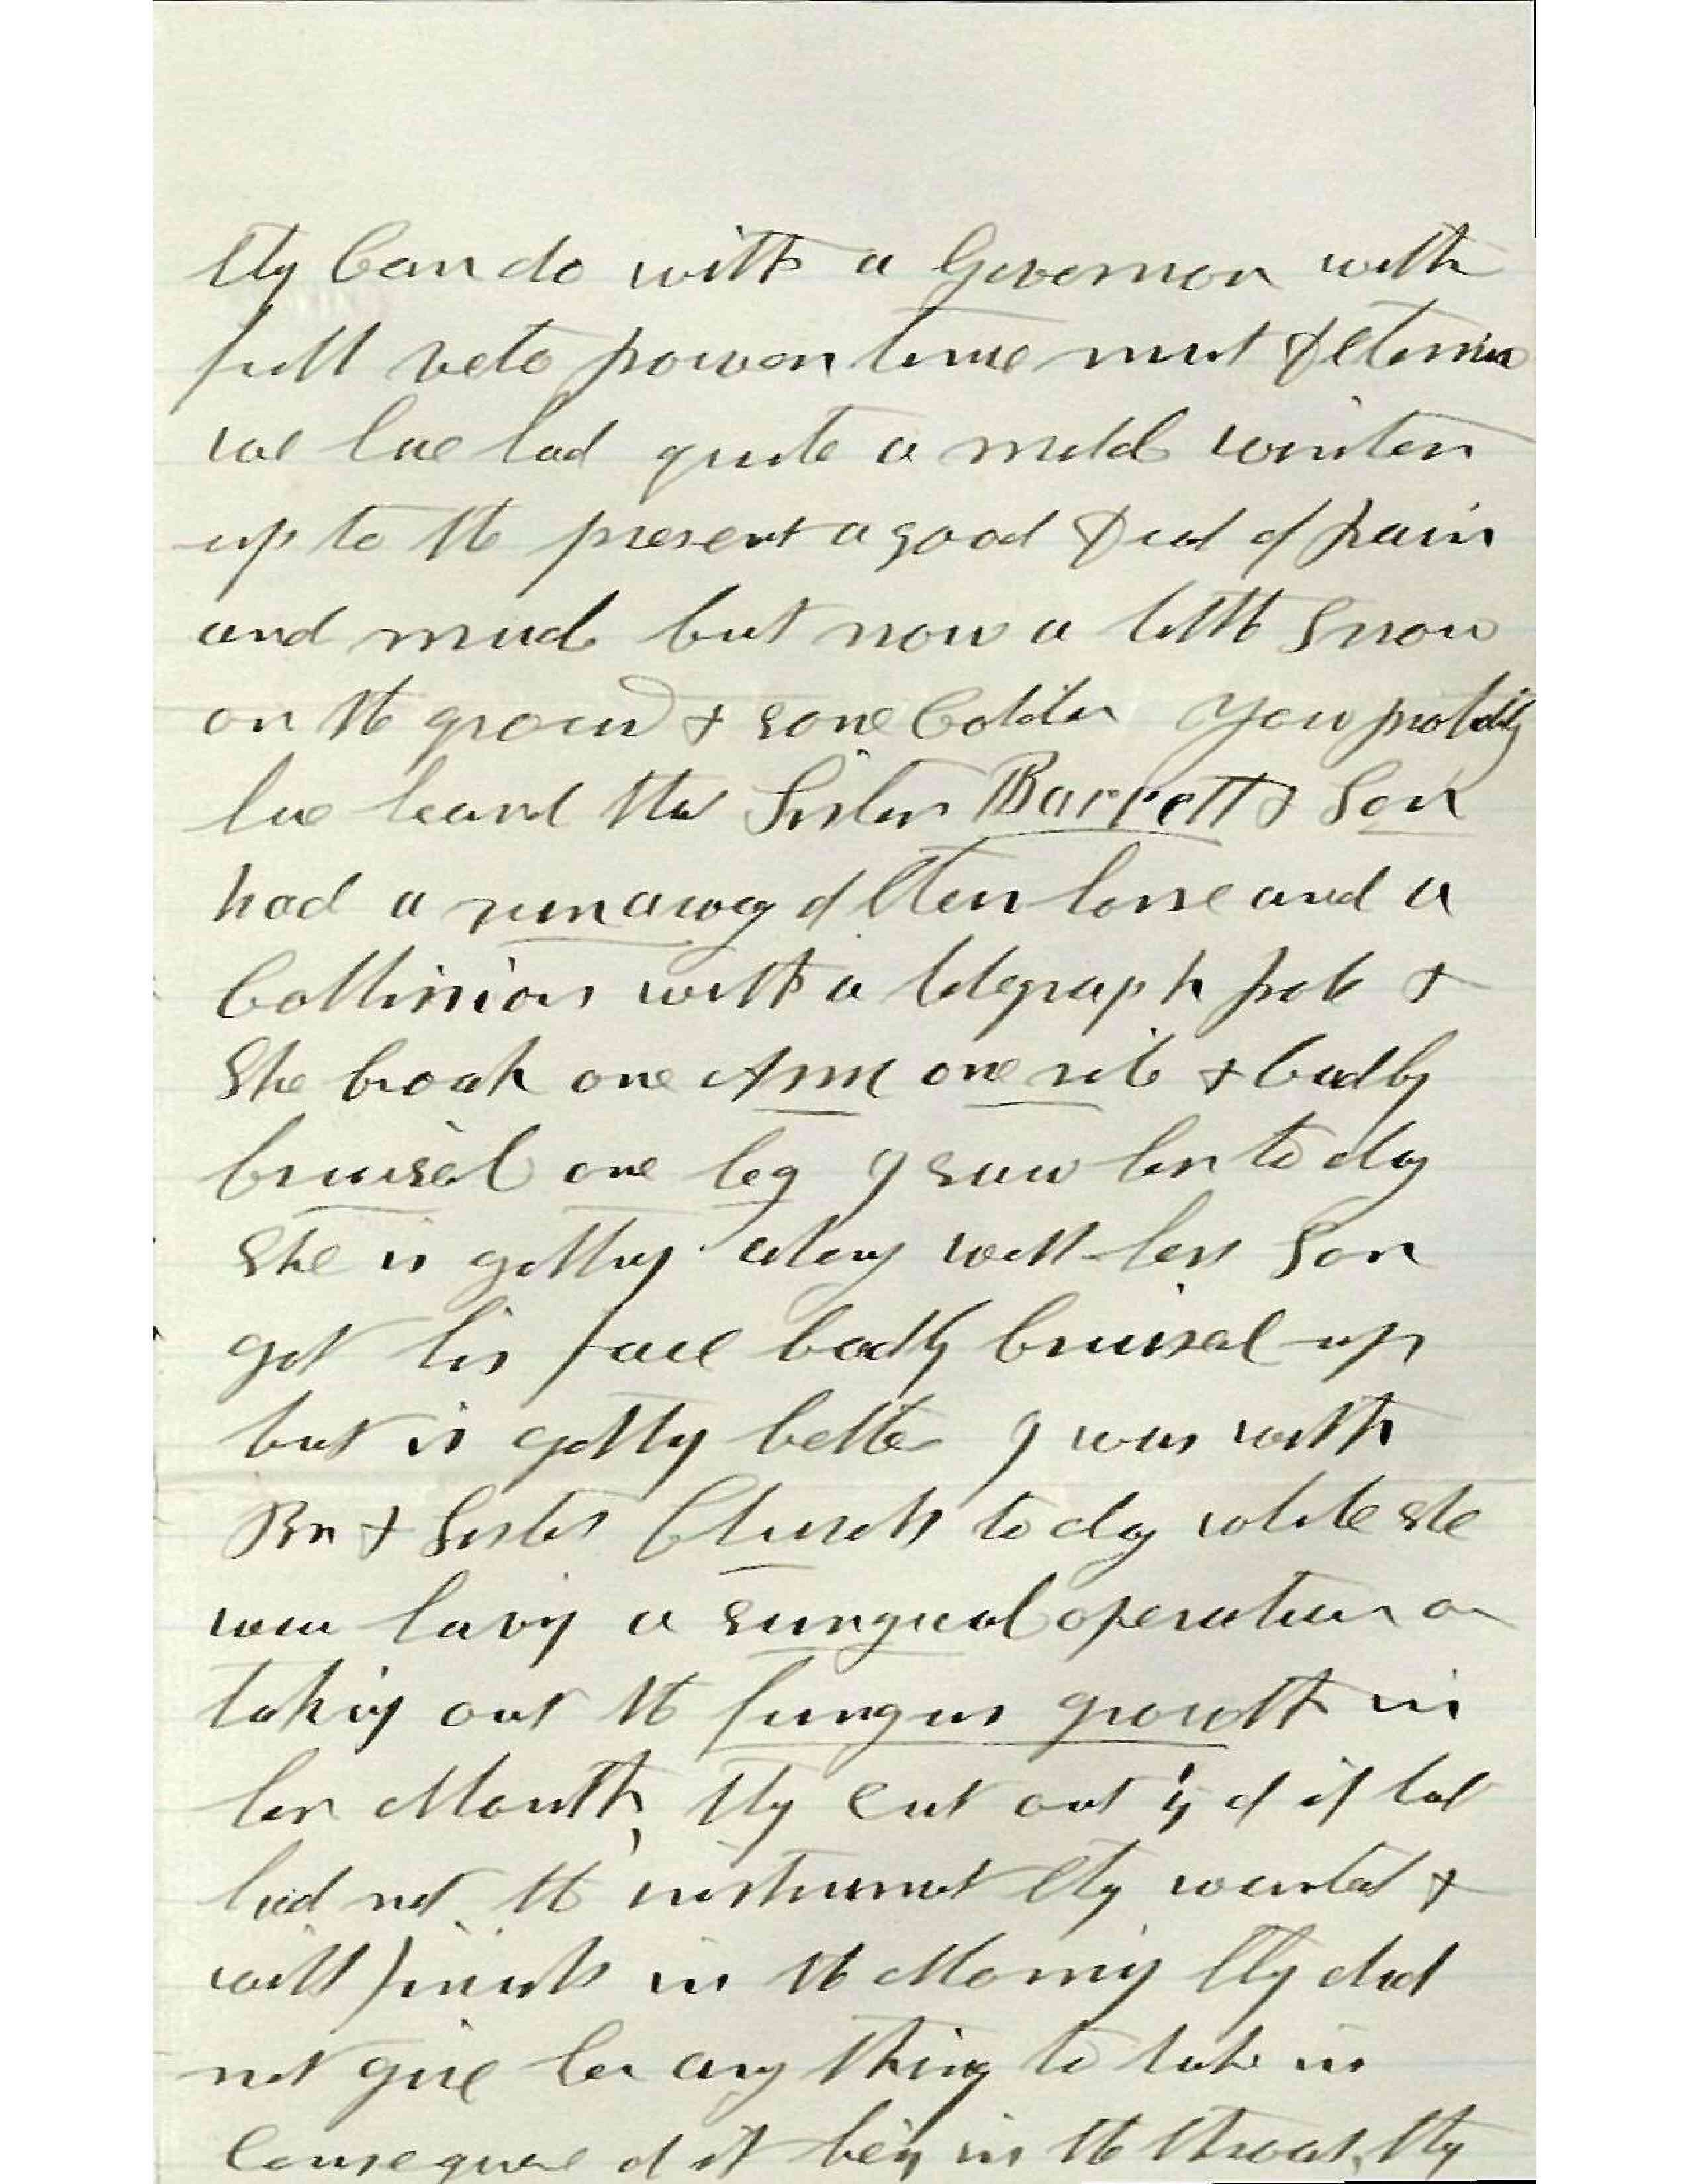 they Can do with a Governor with
full veto power time must determin
we have had quite a mild winter
up to the present a good deal of rain
and mud but now a little Snow
on the ground & some Colder You probably
have heard that Sister Barrett & Son
had a runaway of their horse and a
Collission with a telegraph pole &
She broak one Arm one rib & badly
bruised one leg I saw her to day
She is getting along well her Son
got his face badly bruised up
but is getting better I was with
Br & Sister Church to day while she
was having a surgical operation on
taking out the fungus growth in
her Mouth, they cut out ½ of it but
had not the instrument they wanted &
will finish in the Morning they did
not give her any thing to take in
Consequence of it being in the throat, they